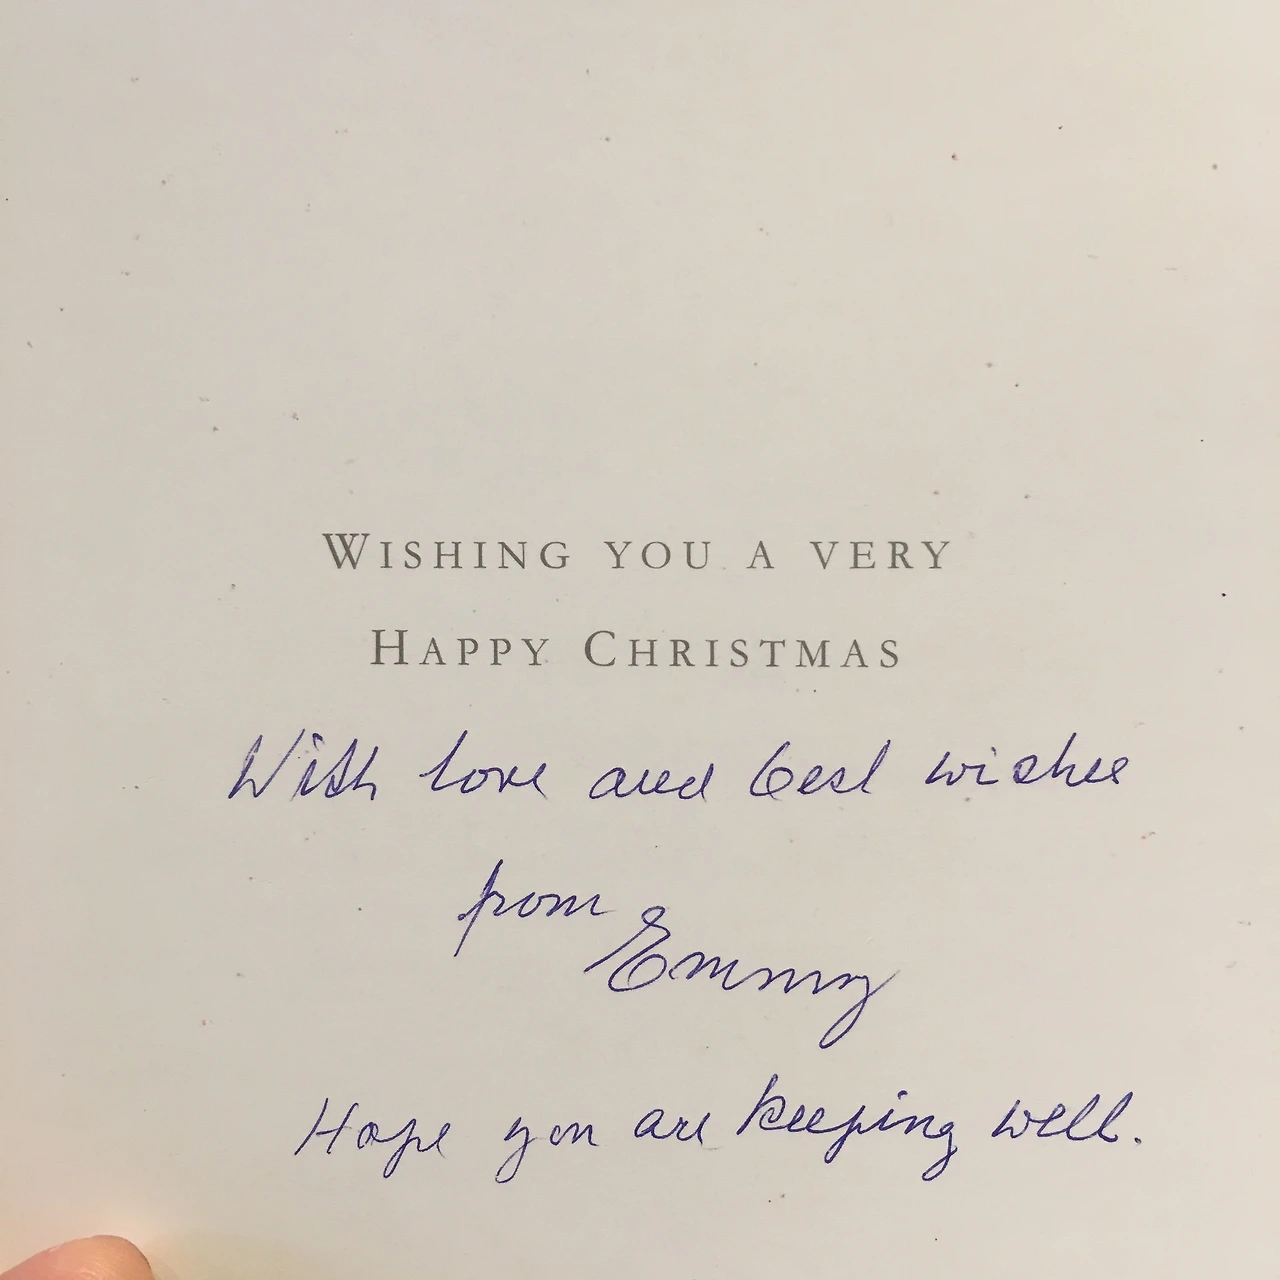 WISHING YOU A VERY
HAPPY CHRISTMAS
With love and best wishes
from
Emmy
Hope you are keeping well.